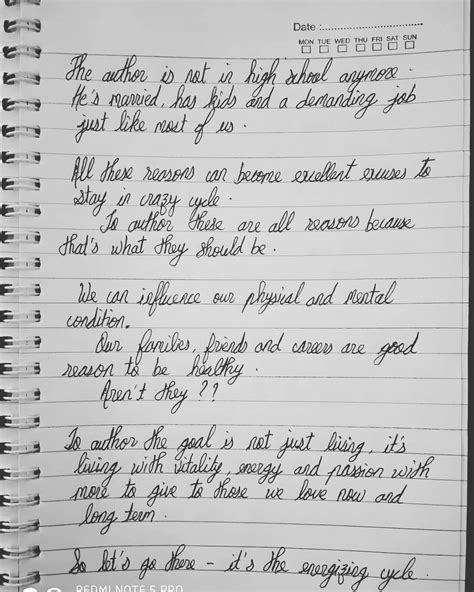 Date :
MON TUE WED THU FRI SAT SUN
The author is not in high school anymore.
He's married, has kids and a demanding job
just like most of us.
All these reasons can become excellent excuses to
stay in crazy cycle.
To author these are all reasons because
that's what they should be.
We can influence our physial and mental
condition.
Our families, friends and careers are good
reason to be healthy.
Aren't they ??
To author the goal is not just living, it's
living with vitality, energy and passion with
more to give to those we love now and
long term.
So let's go there - it's the energizing cycle.
REDMI NOTE 5 PRO